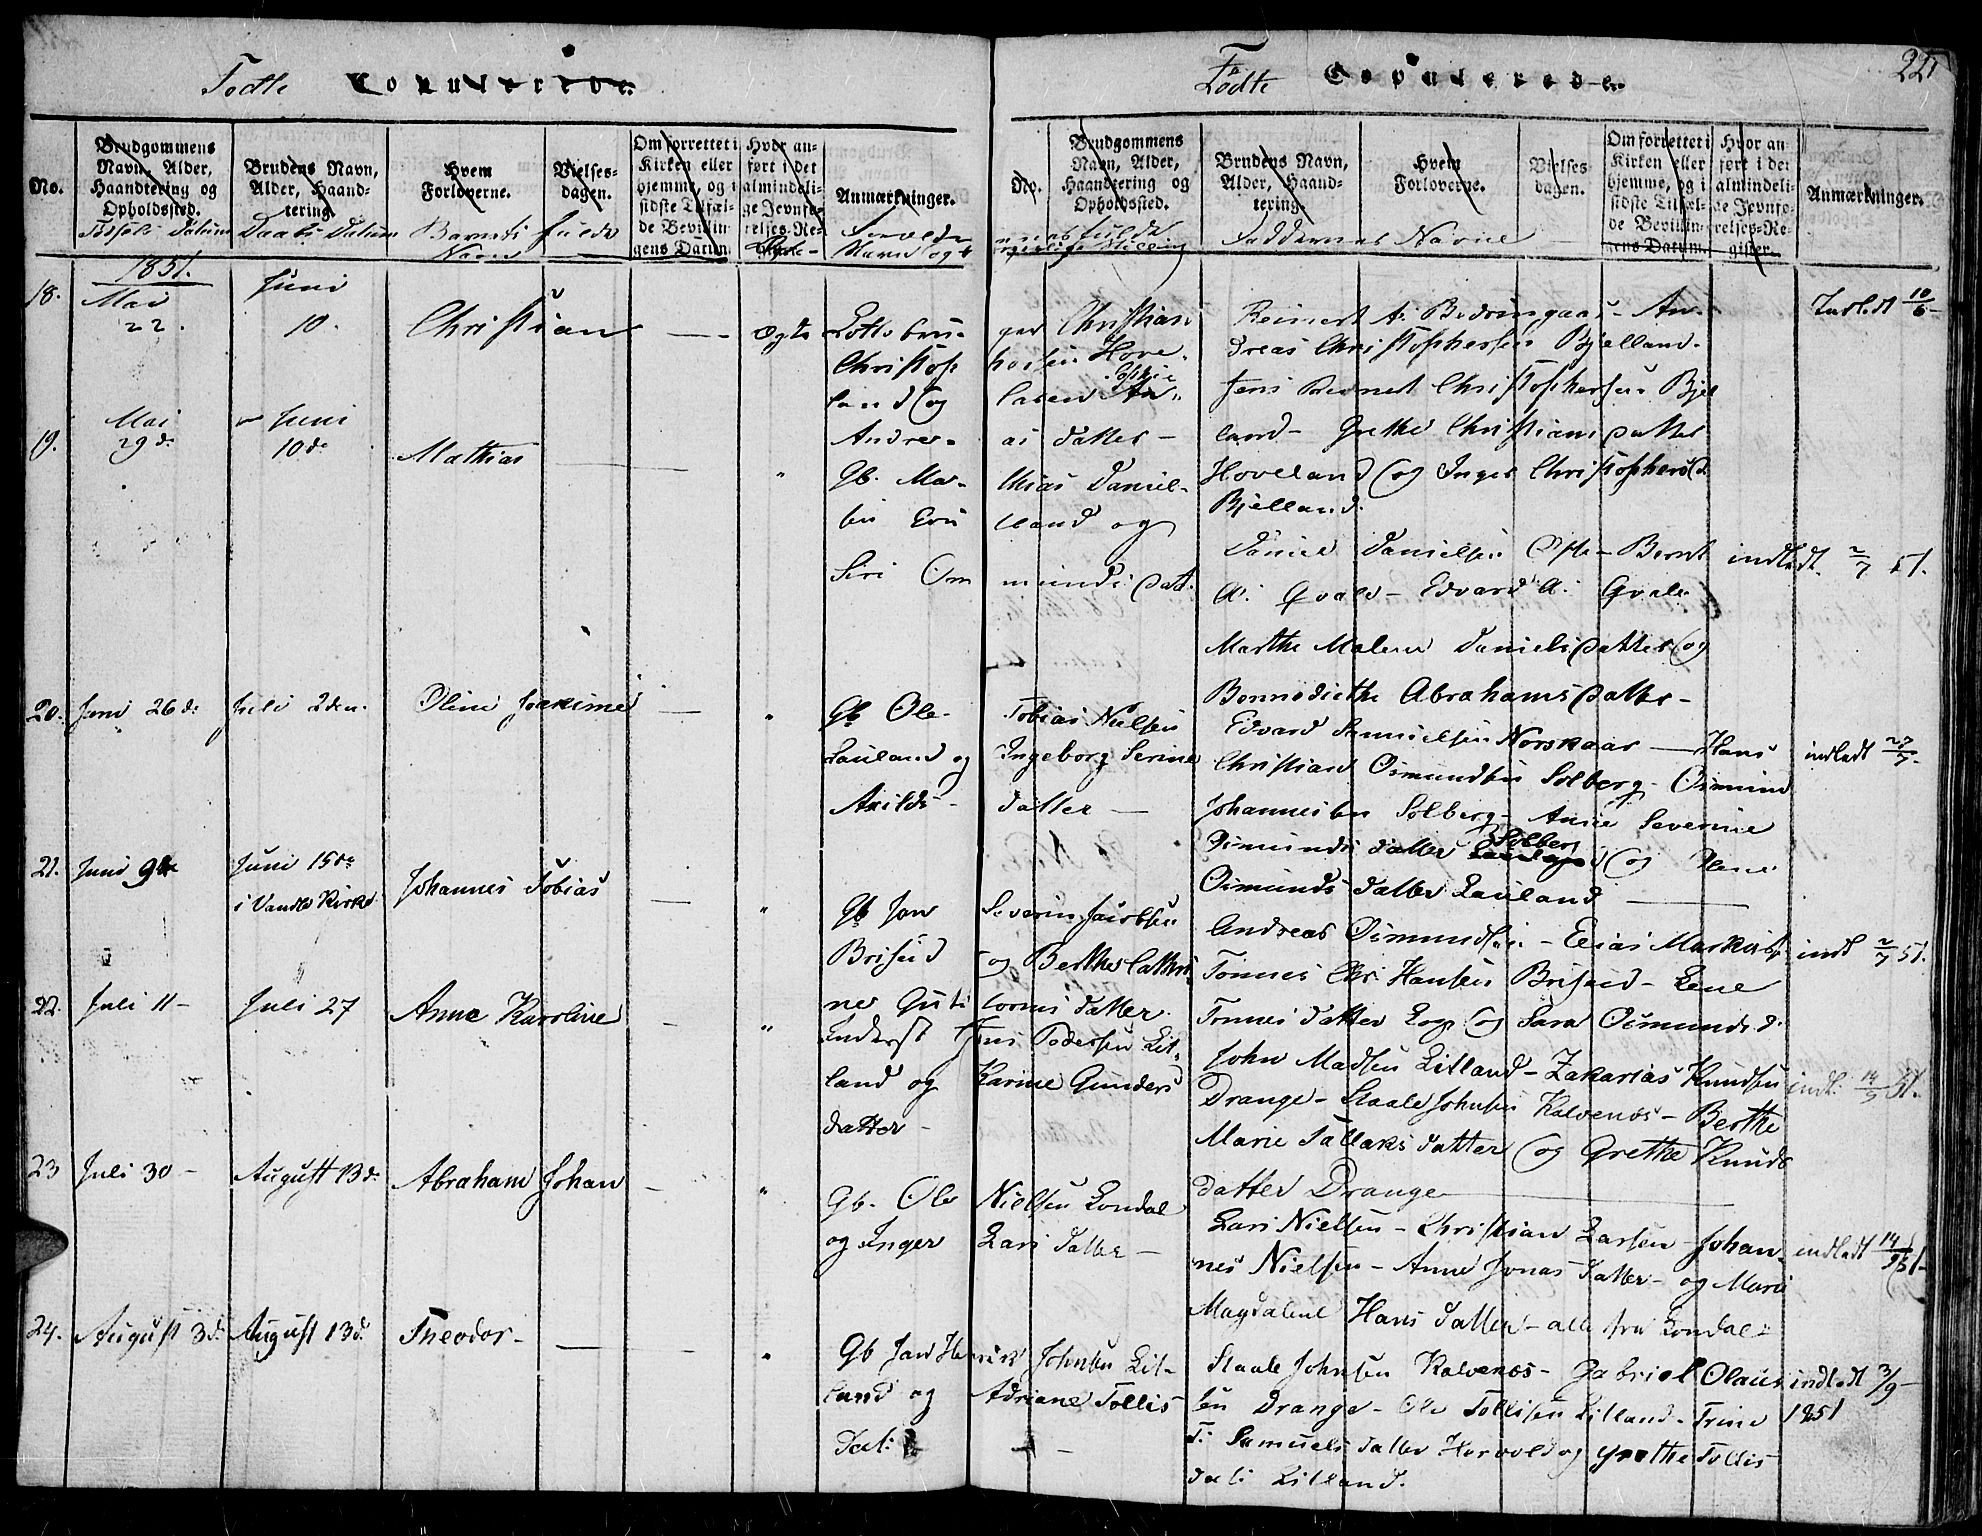 Fødte Copulerede.
Fødte Copulerede.
221
No.
Brudgommens Navn, Alder, Haandtering og Opholdssted.
Brudens Navn, Alder, Haandtering.
Hvem Forloverne.
Vielsesdagen.
Om forrettet i Kirken eller hjemme, og i sidste Tilfælde Bevillingens Datum.
Hvor anført i det almindelige Jevnførelses-Register.
Anmærkninger.
No.
Brudgommens Navn, Alder, Haandtering og Opholdssted.
Brudens Navn, Alder, Haandtering.
Hvem Forloverne.
Vielsesdagen.
Om forrettet i Kirken eller hjemme, og i sidste Tilfælde Bevillingens Datum.
Hvor anført i det almindelige Jevnførelses-Register.
Anmærkninger.
Fødsels Datum
Daabs Datum
Barnets fulde Navn
Navn og
Faddernes Navne
1851.
18.
Mai
22.
Juni
10.
Christian
Ægte
ger Christian
Christof
hersen Hove-
land og
An-
Andrea-
as Datter -
Reinert A. Bedringaas - An-
dreas Christophersen Bjelland.
Jens Reinert Christophersen Bjel
land - Grethe Christians Datter
Hoveland og Inger Christophersd.
Bjelland.
Indl.dt 10/6
19.
Mai
29 d.
Juni
10 d.
Mathias
"
Gb. Ma-
thias Daniel-
sen Eeu
land og
Siri Om
munds Dat.
Daniel Danielsen Øfte - Bernt
A. Qvale - Edvard A. Qvale
Marthe Malene Daniels Datter og
Bennedicthe Abrahams Datter -
indladt. 2/7 51.
20.
Juni 26 d.
Juli 2den.
Oline Joakime
"
Gb Ole
Tobias Nielsen
Lauland og
Ingeborg Serine
Arilds-
Datter -
Edvard Samuelsen Norskaar - Hans
Christian Osmundsen Solberg - Osmund
Johannesen Solberg - Anne Severine
Osmunds Datter Solberg og Olene
Osmunds Datter Lauland
indladt 27/7
21.
Juni 9de
Juni 15de
i Vandse Kirke
Johannes Tobias
"
Gb Jon
Severin Jacobsen
Briseid
og Berthe Cathri
ne Gut
torms Datter.
Andreas Osmundsen - Elias
Tønnes Chr Hansen Briseid - Lene
Tønnes Datter Log og Sara Osmunds d.
indl 2/7 51.
22.
Juli 11 -
Juli 27
Anne Karoline
"
Inderst Jens Pedersen Lit-
land og
Karine Gunders
datter -
John Madsen Litland - Zakarias Knudsen
Drange - Staale Johnsen Kalvenes - Berthe
Marie Tallaks Datter og Grethe Knuds
datter Drange
indl. 14/9 51.
23
Juli 30 -
August 13 d.
Abraham Johan
"
Gb. Ole
Nielsen Londal
og Inger
Lars Datter -
Lars Nielsen - Christian Larsen - Johan-
nes Nielsen - Anne Jonas Datter - og Marie
Magdalene Hans Datter - alle fra Londal.
indladt 14/9 51 -
24.
August 3 d.
August 13 d.
Theodor -
"
Gb Jan Henrik Johnsen Lit-
land og
Adriane Tollis
Dat:
Staale Johnsen Kalvenes - Gabriel Olaus
sen Drange - Ole Tollisen Litland - Trine
T. Samuels Datter Hervold og Grethe Tollis
dat: Litland.
indladt 3/9
1851